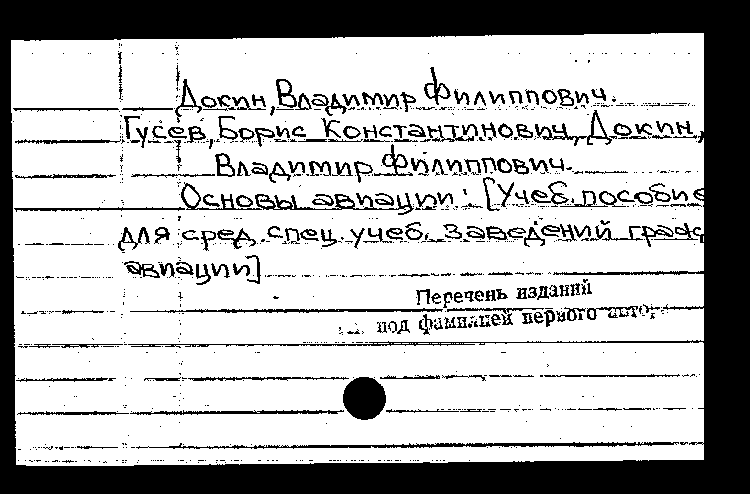 Докин, Владимир Филиппович.
Гусев, Борис Константинович, Докин,
Владимир Филиппович.
Основы авиации: [Учеб. пособие
для сред. спец. учеб. заведений гражд
авиации]
Перечень изданий
под фамилией первого автора